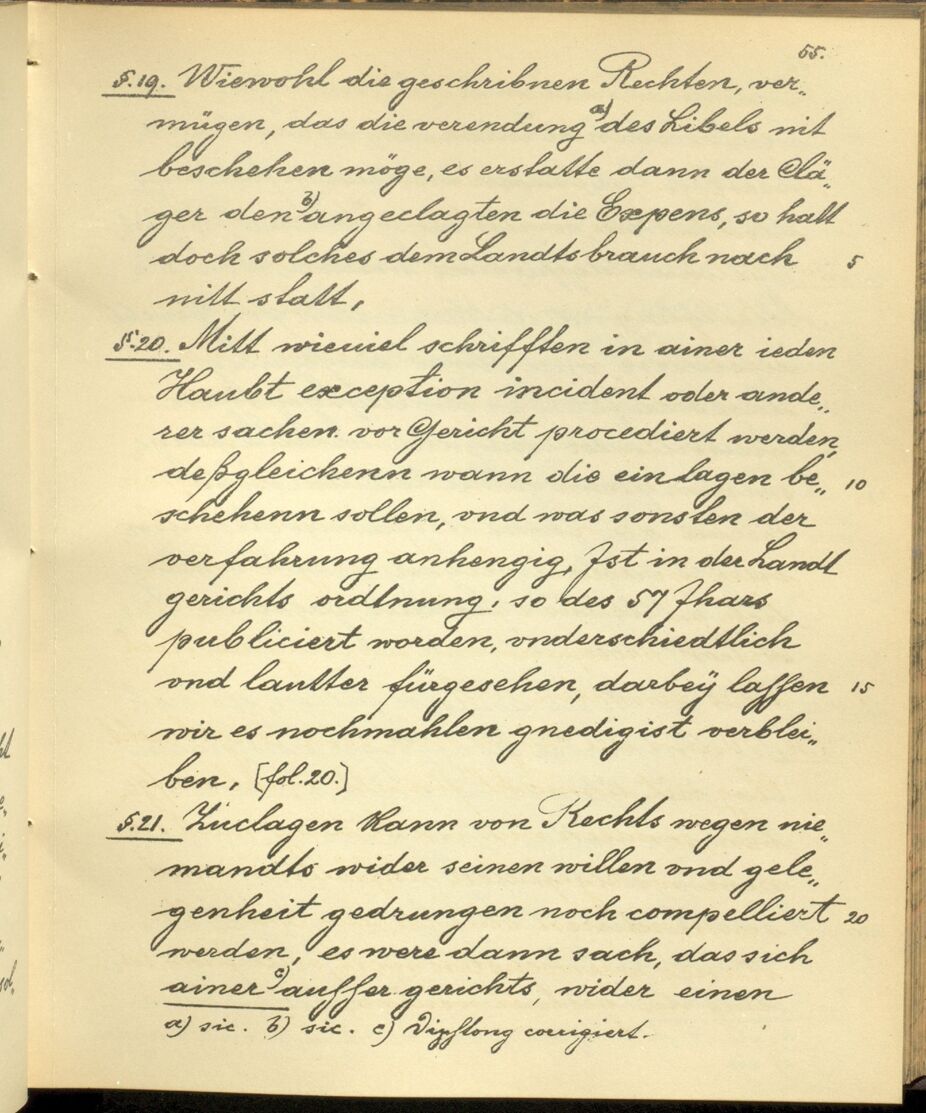 55.
§.19. Wiewohl die geschribnen Rechten, ver„
mügen, das die verendung a) des Libels nit
beschehen möge, es erstatte dann der Clä„
ger den b) angeclagten die Expens, so halt
doch solches dem Landtsbrauch nach 5
nitt statt,
§.20. Mitt wieuiel schrifften in ainer ieden
Haubt exception incident oder ande„
rer sachen vor Gericht procediert werden,
deßgleichenn wann die einlagen be„ 10
schehenn sollen, vnd was sonsten der
verfahrung anhengig, Ist in der Landt
gerichts ordtnung, so des 57 Jhars
publiciert worden, vnderschiedtlich
vnd lautter fürgesehen, darbeÿ lassen 15
wir es nochmahlen gnedigist verblei„
ben, [fol.20.]
§.21. Zuclagen kann von Rechts wegen nie„
mandts wider seinen willen vnd gele„
genheit gedrungen noch compelliert 20
werden, es were dann sach, das sich
ainer c) ausser gerichts, wider einen
a) sic. b) sic. c) corrigiert.